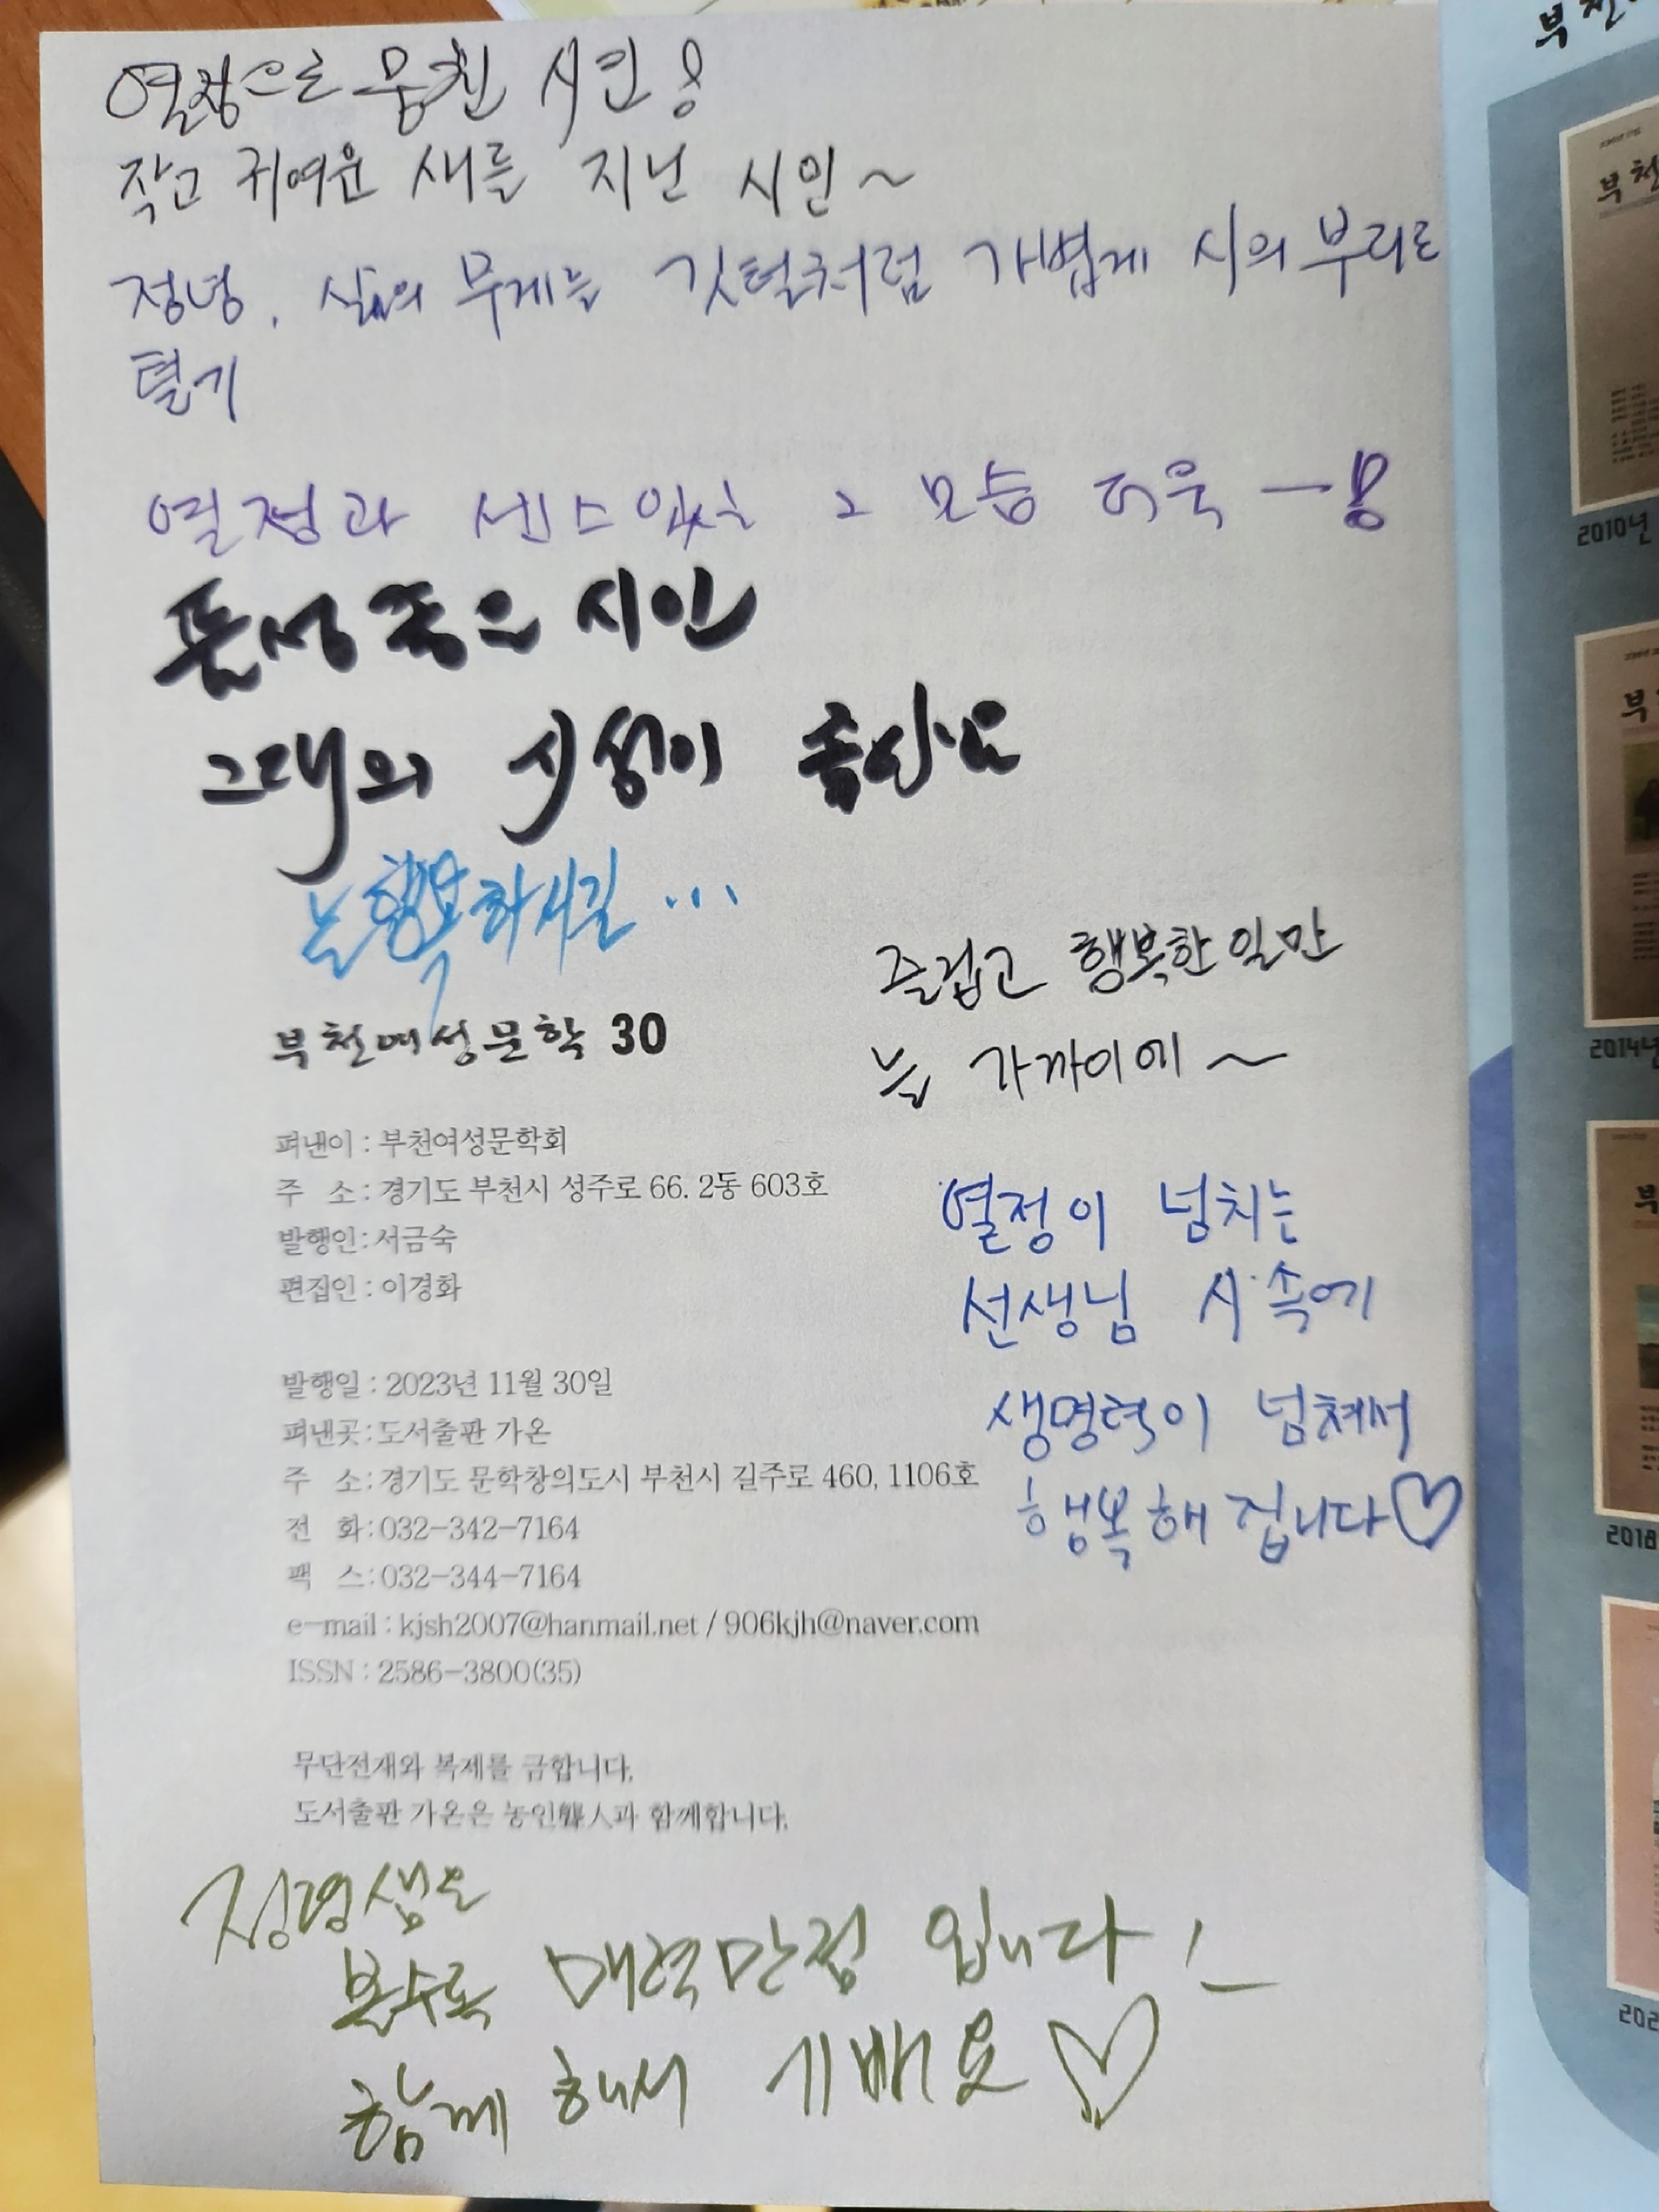 열정으로 뭉친 시인!
작고 귀여운 새를 지닌 시인~
정녕, 삶의 무게는 깃털처럼 가볍게 시의 부리로
털기
열정과 센스있는 그 모습 더욱 ㅡ
품성 좋은 시인
그대의 시성이 좋아요
늘 행복하시길 ...
즐겁고 행복한 일만
늘 가까이에~
부천여성문학 30
펴낸이 : 부천여성문학회
주 소 : 경기도 부천시 성주로 66. 2동 603호
발행인 : 서금숙
편집인 : 이경화
열정이 넘치는
선생님 시 속에
생명력이 넘쳐서
행복해 집니다♡
발행일 : 2023년 11월 30일
펴낸곳 : 도서출판 가온
주 소 : 경기도 문학창의도시 부천시 길주로 460, 1106호
전 화 : 032-342-7164
팩 스 : 032-344-7164
e-mail : kjsh2007@hanmail.net / 906kjh@naver.com
ISSN : 2586-3800(35)
무단전재와 복제를 금합니다.
도서출판 가온은 농인聾人과 함께합니다.
정령샘은
볼수록 매력만점 입니다!
함께 해서 기뻐요♡
부천
부천
2010년
부
2014년
부
2018
202